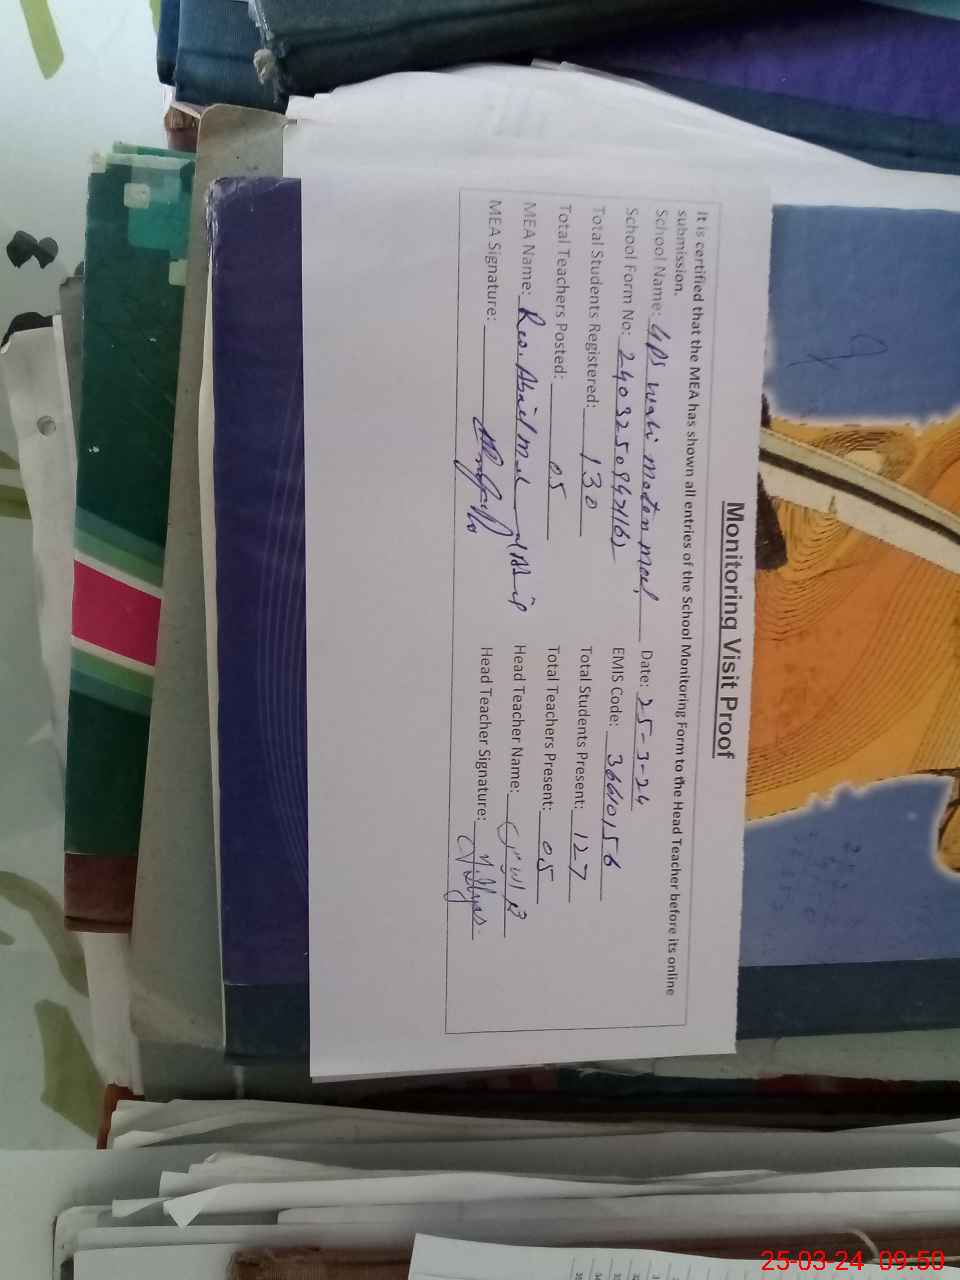 Monitoring Visit Proof
It is certified that the MEA has shown all entries of the School Monitoring Form to the Head Teacher before its online
submission.
School Name: GPS Wali Date: 25-3-24
School Form No: EMIS Code: 36610156
Total Students Registered: 130 Total Students Present: 127
Total Teachers Posted: 05 Total Teachers Present: 05
MEA Name: Head Teacher Name:
MEA Signature: Head Teacher Signature: M. Ilyas
25-03-24 09:50